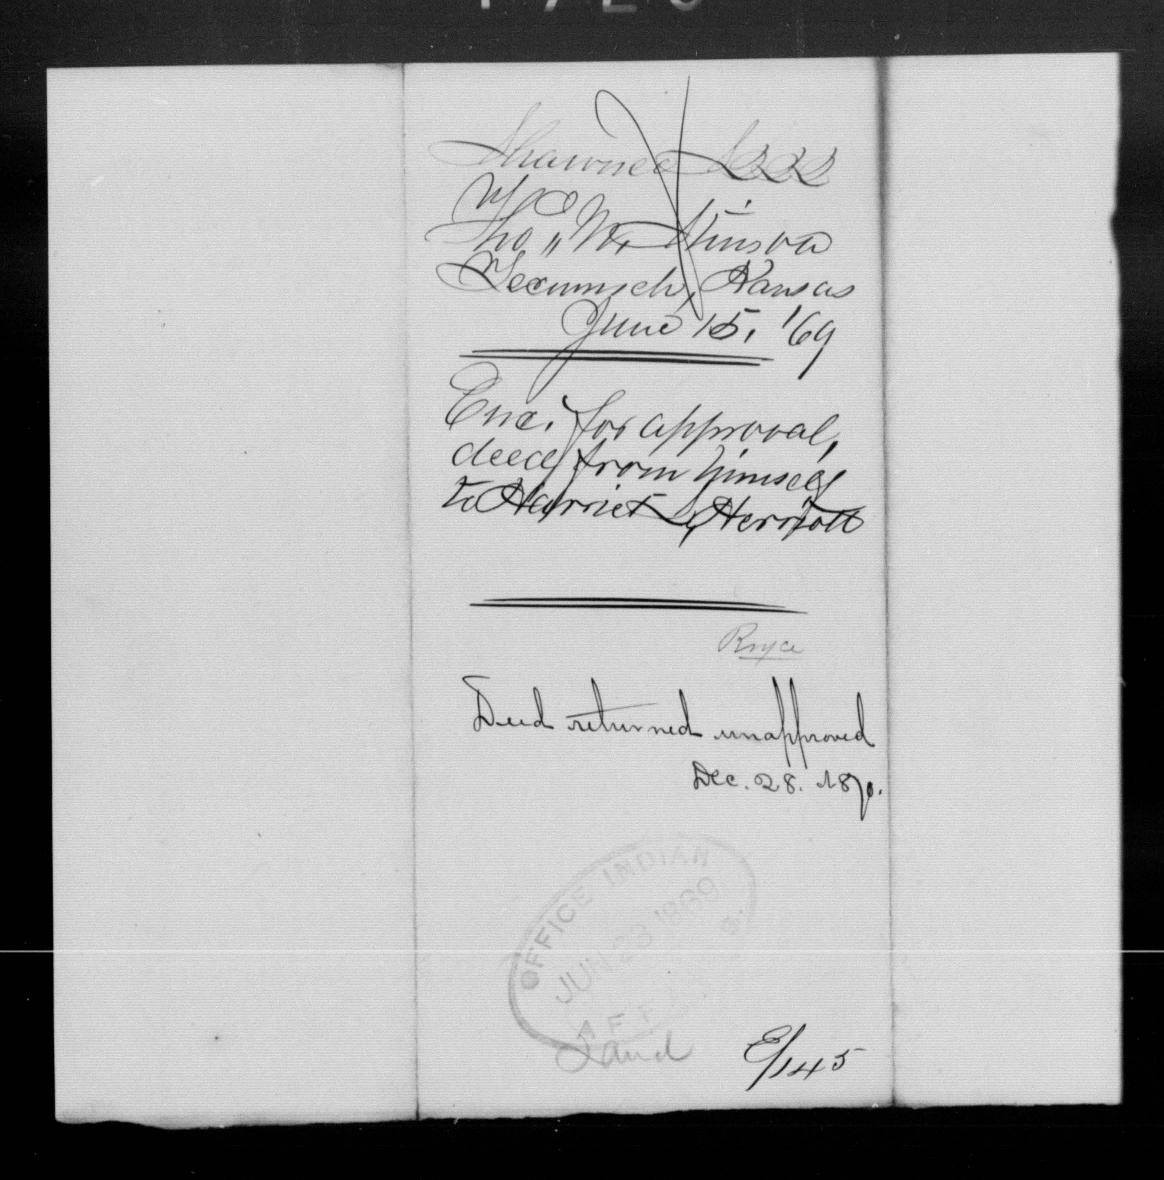 Shawnee S222
Tho," N. Stinson
Tecumseh, Kansas
June 15, '69
Enc. for approval,
deed from himself
to Harriet L, Herriott
Royce
Deed returned unapproved
Dec. 28. 1870.
OFFICE INDIAN
JUN 23 1869
AFF S.
Land
E/145